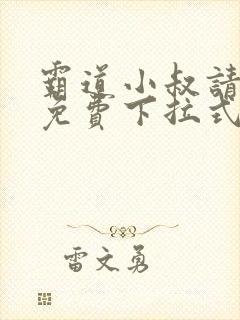 霸道小叔請
免費下拉式
雷文勇